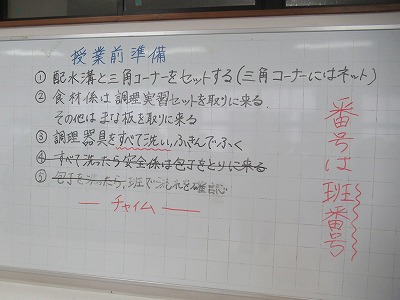 授業前準備
① 配水溝と三角コーナーをセットする(三角コーナーにはネット)
② 食材係は調理実習セットを取りに来る
その他はまな板を取りに来る
③ 調理器具をすべて洗い,ふきんでふく
④ すべて洗ったら安全係は包丁をとりに来る
⑤ 包丁を洗ったら,班で洗もれを確認
チャイム
番号は班番号